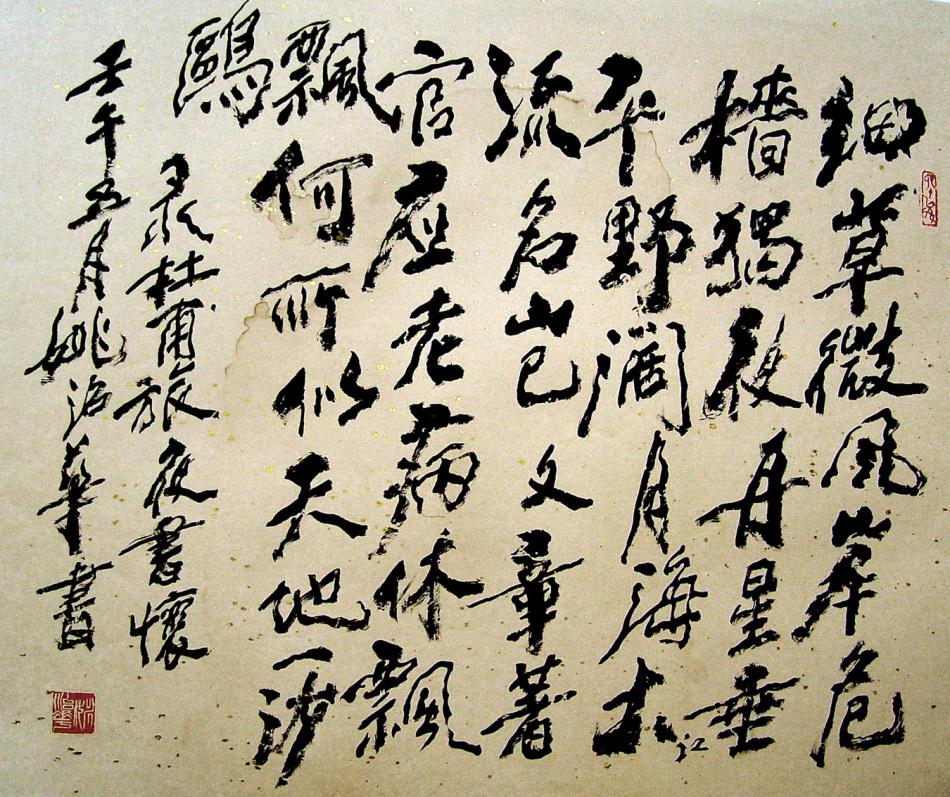 細草微風岸危
檣獨夜舟星垂
平野闊月湧大江
流名岂文章著
官应老病休飄
飄何所似天地一沙
鷗
录杜甫旅夜書懷
壬午五月姚治華書